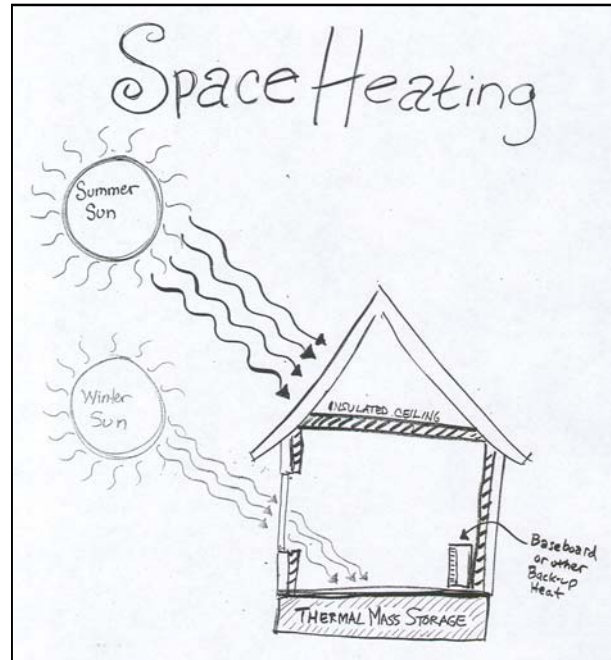 Space Heating
Summer
Sun
Winter
Sun
INSULATED CEILING
Baseboard
or other
Back-up
Heat
THERMAL MASS STORAGE